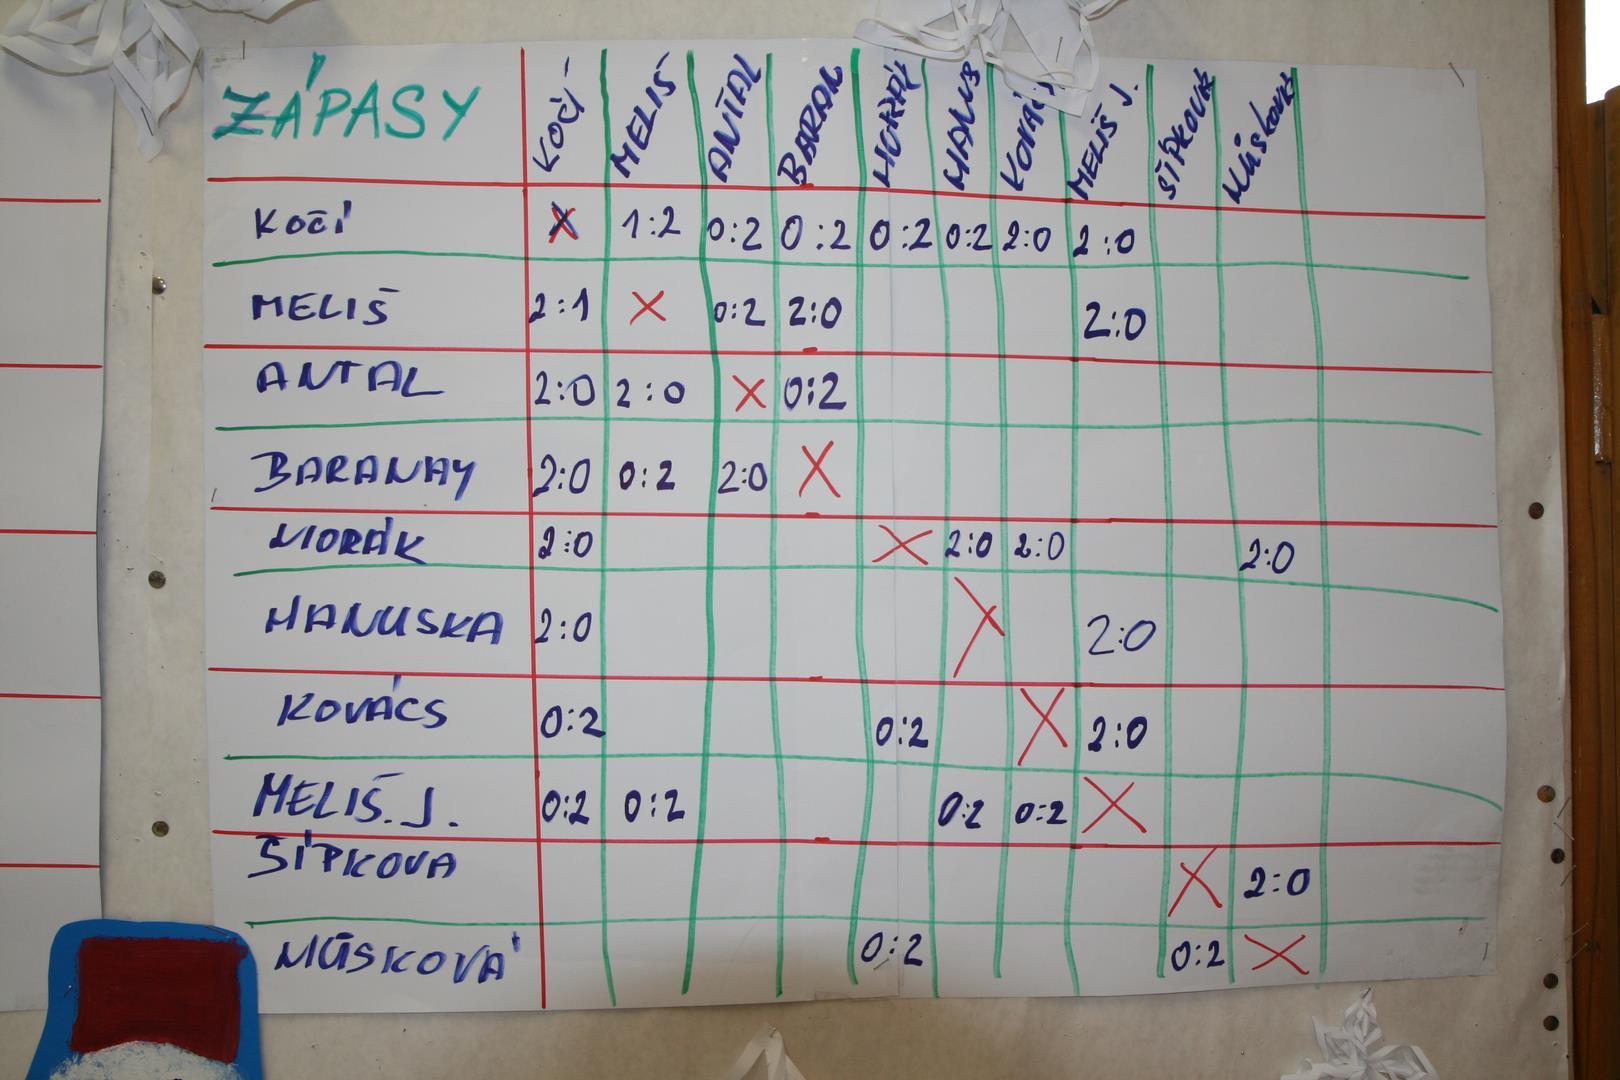 ZÁPASY KOČÍ MELIŠ ANTAL BARAN HORÁK HANUS KOVÁC MELIŠ J. ŠÍPKOVÁ MÚŠKOVÁ
KOČÍ X 1:2 0:2 0:2 0:2 0:2 2:0 2:0
MELIŠ 2:1 X 0:2 2:0 2:0
ANTAL 2:0 2:0 X 0:2
BARANAY 2:0 0:2 2:0 X
HORÁK 2:0 X 2:0 2:0 2:0
HANUSKA 2:0 X 2:0
KOVÁCS 0:2 0:2 X 2:0
MELIŠ. J. 0:2 0:2 0:2 0:2 X
ŠÍPKOVA X 2:0
MŪSKOVÁ 0:2 0:2 X